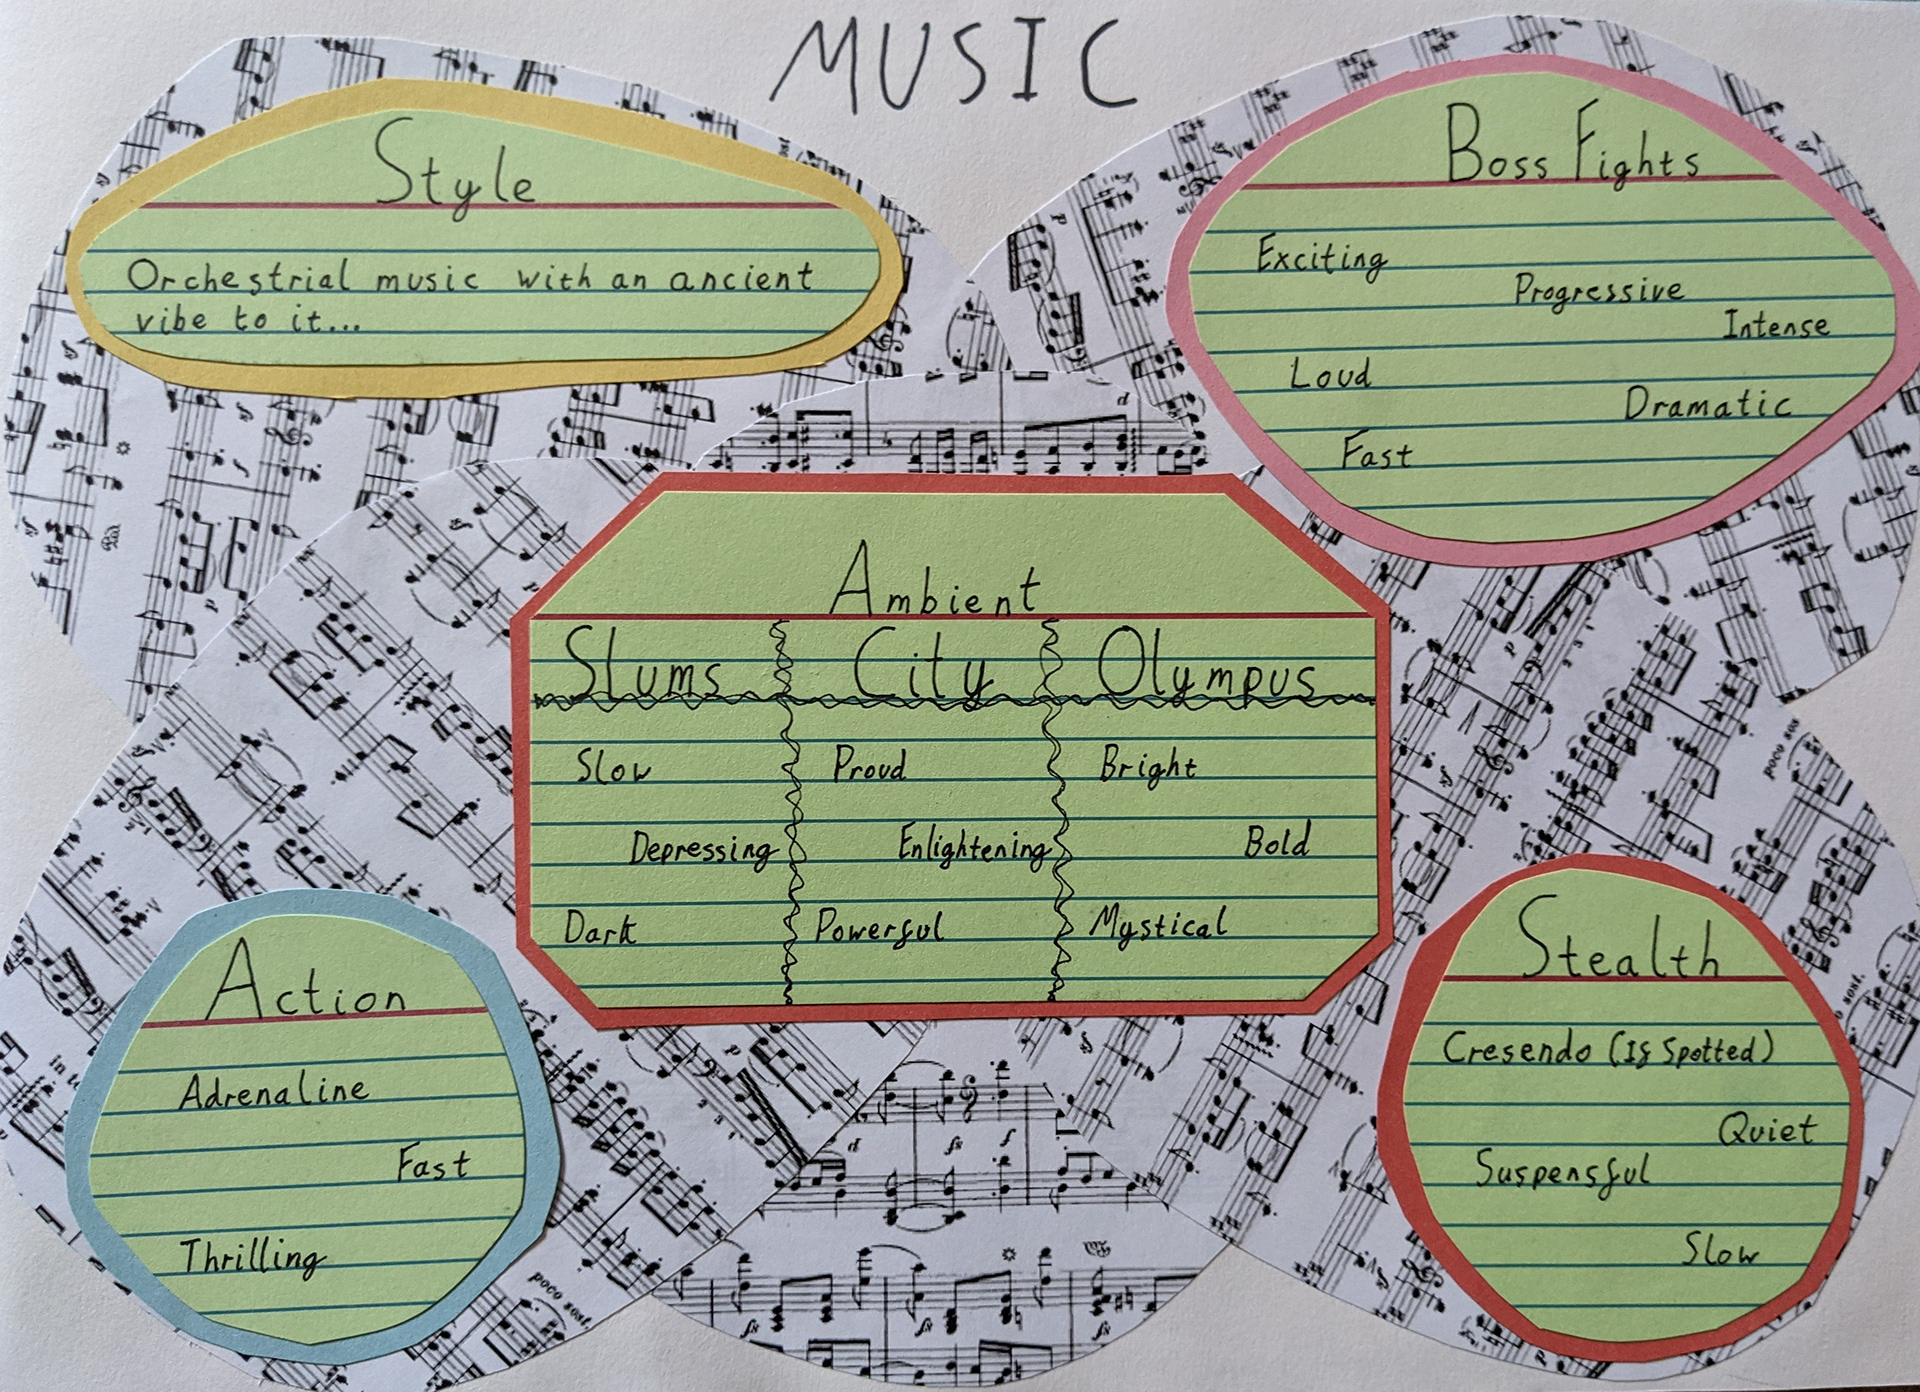 MUSIC
Style
Orchestrial music with an ancient
vibe to it...
Boss Fights
Exciting
Progressive
Intense
Loud
Dramatic
Fast
Ambient
Slums City Olympus
Slow Proud Bright
Depressing Enlightening Bold
Dark Powerful Mystical
Action
Adrenaline
Fast
Thrilling
Stealth
Cresendo (If Spotted)
Quiet
Suspensful
Slow
poco sost.
poco sos